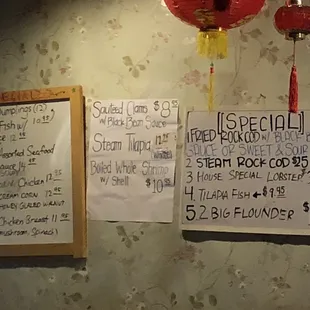 Dumplings (12)
Fish w/ 10.95
Assorted Seafood
Sauce
Chicken 12.95
Cream Corn
Honey Glazed Walnut
Chicken Breast 11.95
(Mushroom, Spinach)
Sauteed Clams $8
w/ Black Bean Sauce
Steam Tilapia 12
Boiled Whole Shrimp
w/ Shell $10
[SPECIAL
1 FRIED ROCK COD W/ BLACK
SAUCE OR SWEET & SOUR
2 STEAM ROCK COD $25
3 HOUSE SPECIAL LOBSTER
4. TILAPIA FISH ← $9.95
5. 2 BIG FLOUNDER $